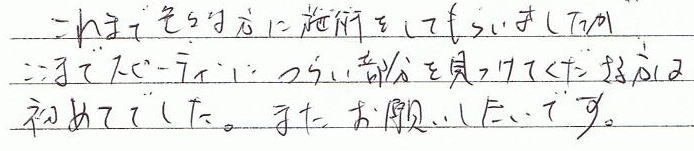 これまで色々な方に施術をしてもらいましたが
ここまでスピーディに つらい部分を見つけてくださる方は
初めてでした。またお願いしたいです。